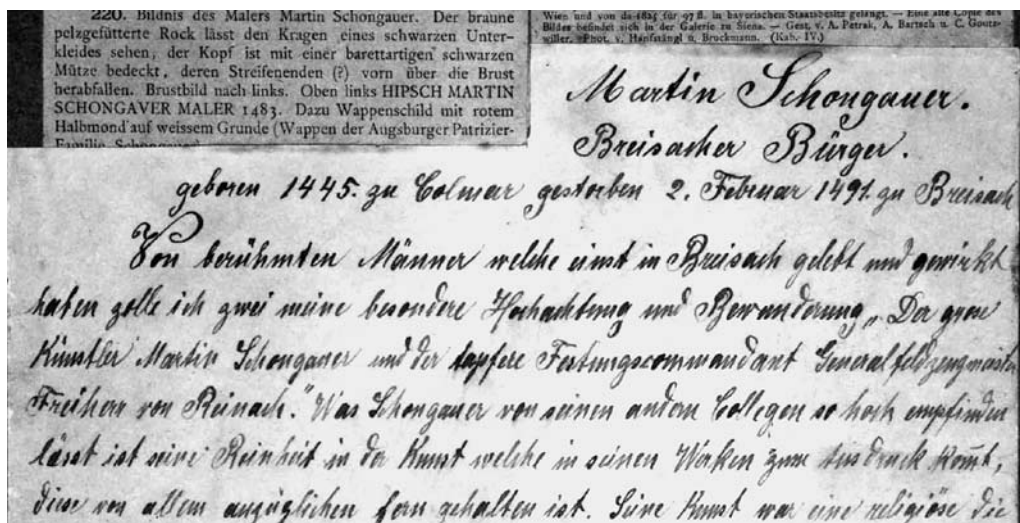 220. Bildnis des Malers Martin Schongauer. Der braune
pelzgefütterte Rock lässt den Kragen eines schwarzen Unter-
kleides sehen, der Kopf ist mit einer barettartigen schwarzen
Mütze bedeckt, deren Streifenenden (?) vorn über die Brust
herabfallen. Brustbild nach links. Oben links HIPSCH MARTIN
SCHONGAVER MALER 1483. Dazu Wappenschild mit rotem
Halbmond auf weissem Grunde (Wappen der Augsburger Patrizier-
Familie Schongauer
Wien und von da 1825 für 97 fl. in bayerischen Staatsbesitz gelangt. — Eine alte Copie des
Bildes befindet sich in der Galerie zu Siena. — Gest. v. A. Petrak, A. Bartsch u. C. Goutz-
willer. Phot. v. Hanfstängl u. Bruckmann. (Kab. IV.)
Martin Schongauer.
Breisacher Bürger.
geboren 1445. zu Colmar gestorben 2. Februar 1491. zu Breisach
Von berühmten Männer welche einst in Breisach gelebt und gewirkt
haben zolle ich zwei meine besondere Hochachtung und Bewunderung „Der grose
Künstler Martin Schongauer und der tapfere Festungscommandant Generalfeldzeugmeister
Freiherr von Reinach." Was Schongauer von seinen andern Collegen so hoch empfinden
lässt ist seine Reinheit in der Kunst welche in seinen Werken zum Ausdruck kom̄t,
diese von allem anzüglichen fern gehalten ist. Seine Kunst war eine religiöse die